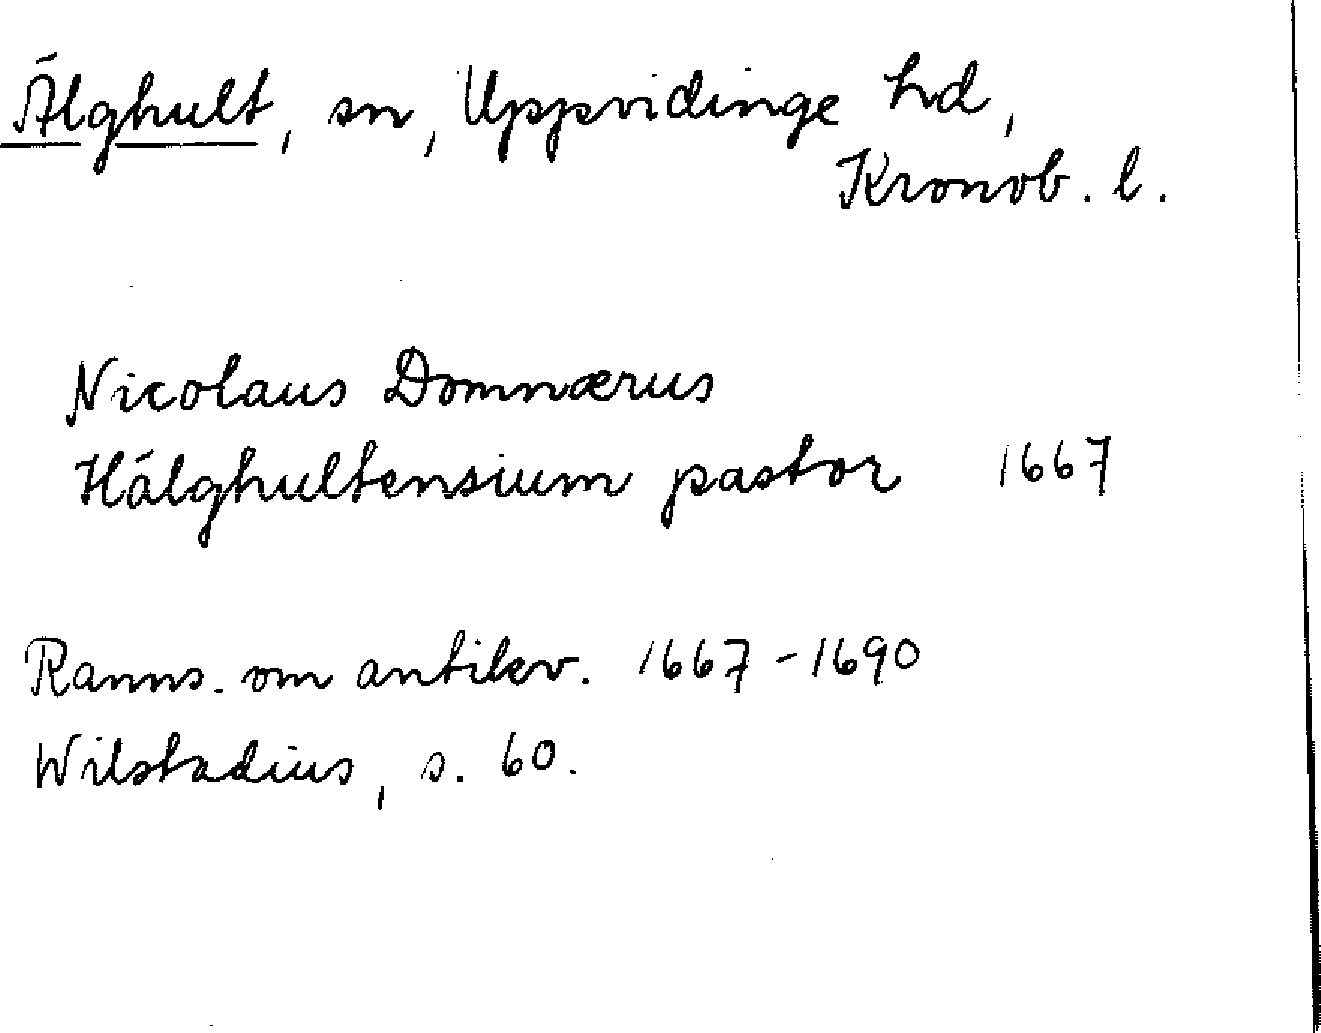 Älghult, sn, Uppvidinge hd,
Kronob. l.
Nicolaus Domnærus
Hälghultensium pastor 1667
Ranns. om antikv. 1667-1690
Wilstadius, s. 60.